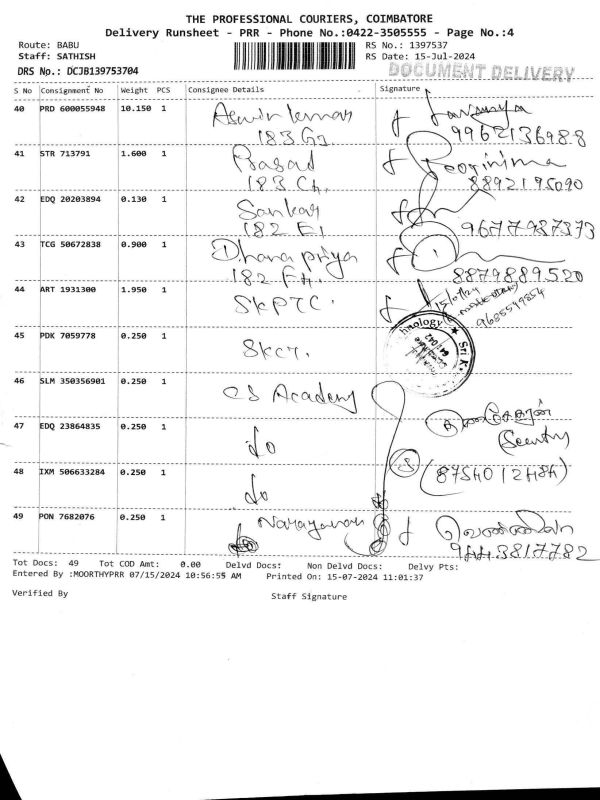 THE PROFESSIONAL COURIERS, COIMBATORE
Delivery Runsheet - PRR - Phone No.:0422-3505555 - Page No.:4
Route: BABU RS No.: 1397537
Staff: SATHISH RS Date: 15-Jul-2024
DRS No.: DCJB139753704 DOCUMENT DELIVERY
S No Consignment No Weight PCS Consignee Details Signature
40 PRD 600055948 10.150 1 Aswin kumar Lavanya
183 G1. 9962136988
41 STR 713791 1.600 1 Prasad Poornima
183 Ch. 8892195090
42 EDQ 20203894 0.130 1 Sankar
182 F1 9677937373
43 TCG 50672838 0.900 1 Dhanapriya
182 FH. 8879889520
44 ART 1931300 1.950 1 SKPTC. 15/07/24
9685549854
45 PDK 7059778 0.250 1 SKCT. hnology ★ Sri K
641 042
46 SLM 350356901 0.250 1 CS Academy
47 EDQ 23864835 0.250 1 do Security
48 IXM 506633284 0.250 1 do (87540 12484)
49 PON 7682076 0.250 1 Narayanan
9443817782
Tot Docs: 49 Tot COD Amt: 0.00 Delvd Docs: Non Delvd Docs: Delvy Pts:
Entered By :MOORTHYPRR 07/15/2024 10:56:55 AM Printed On: 15-07-2024 11:01:37
Verified By Staff Signature